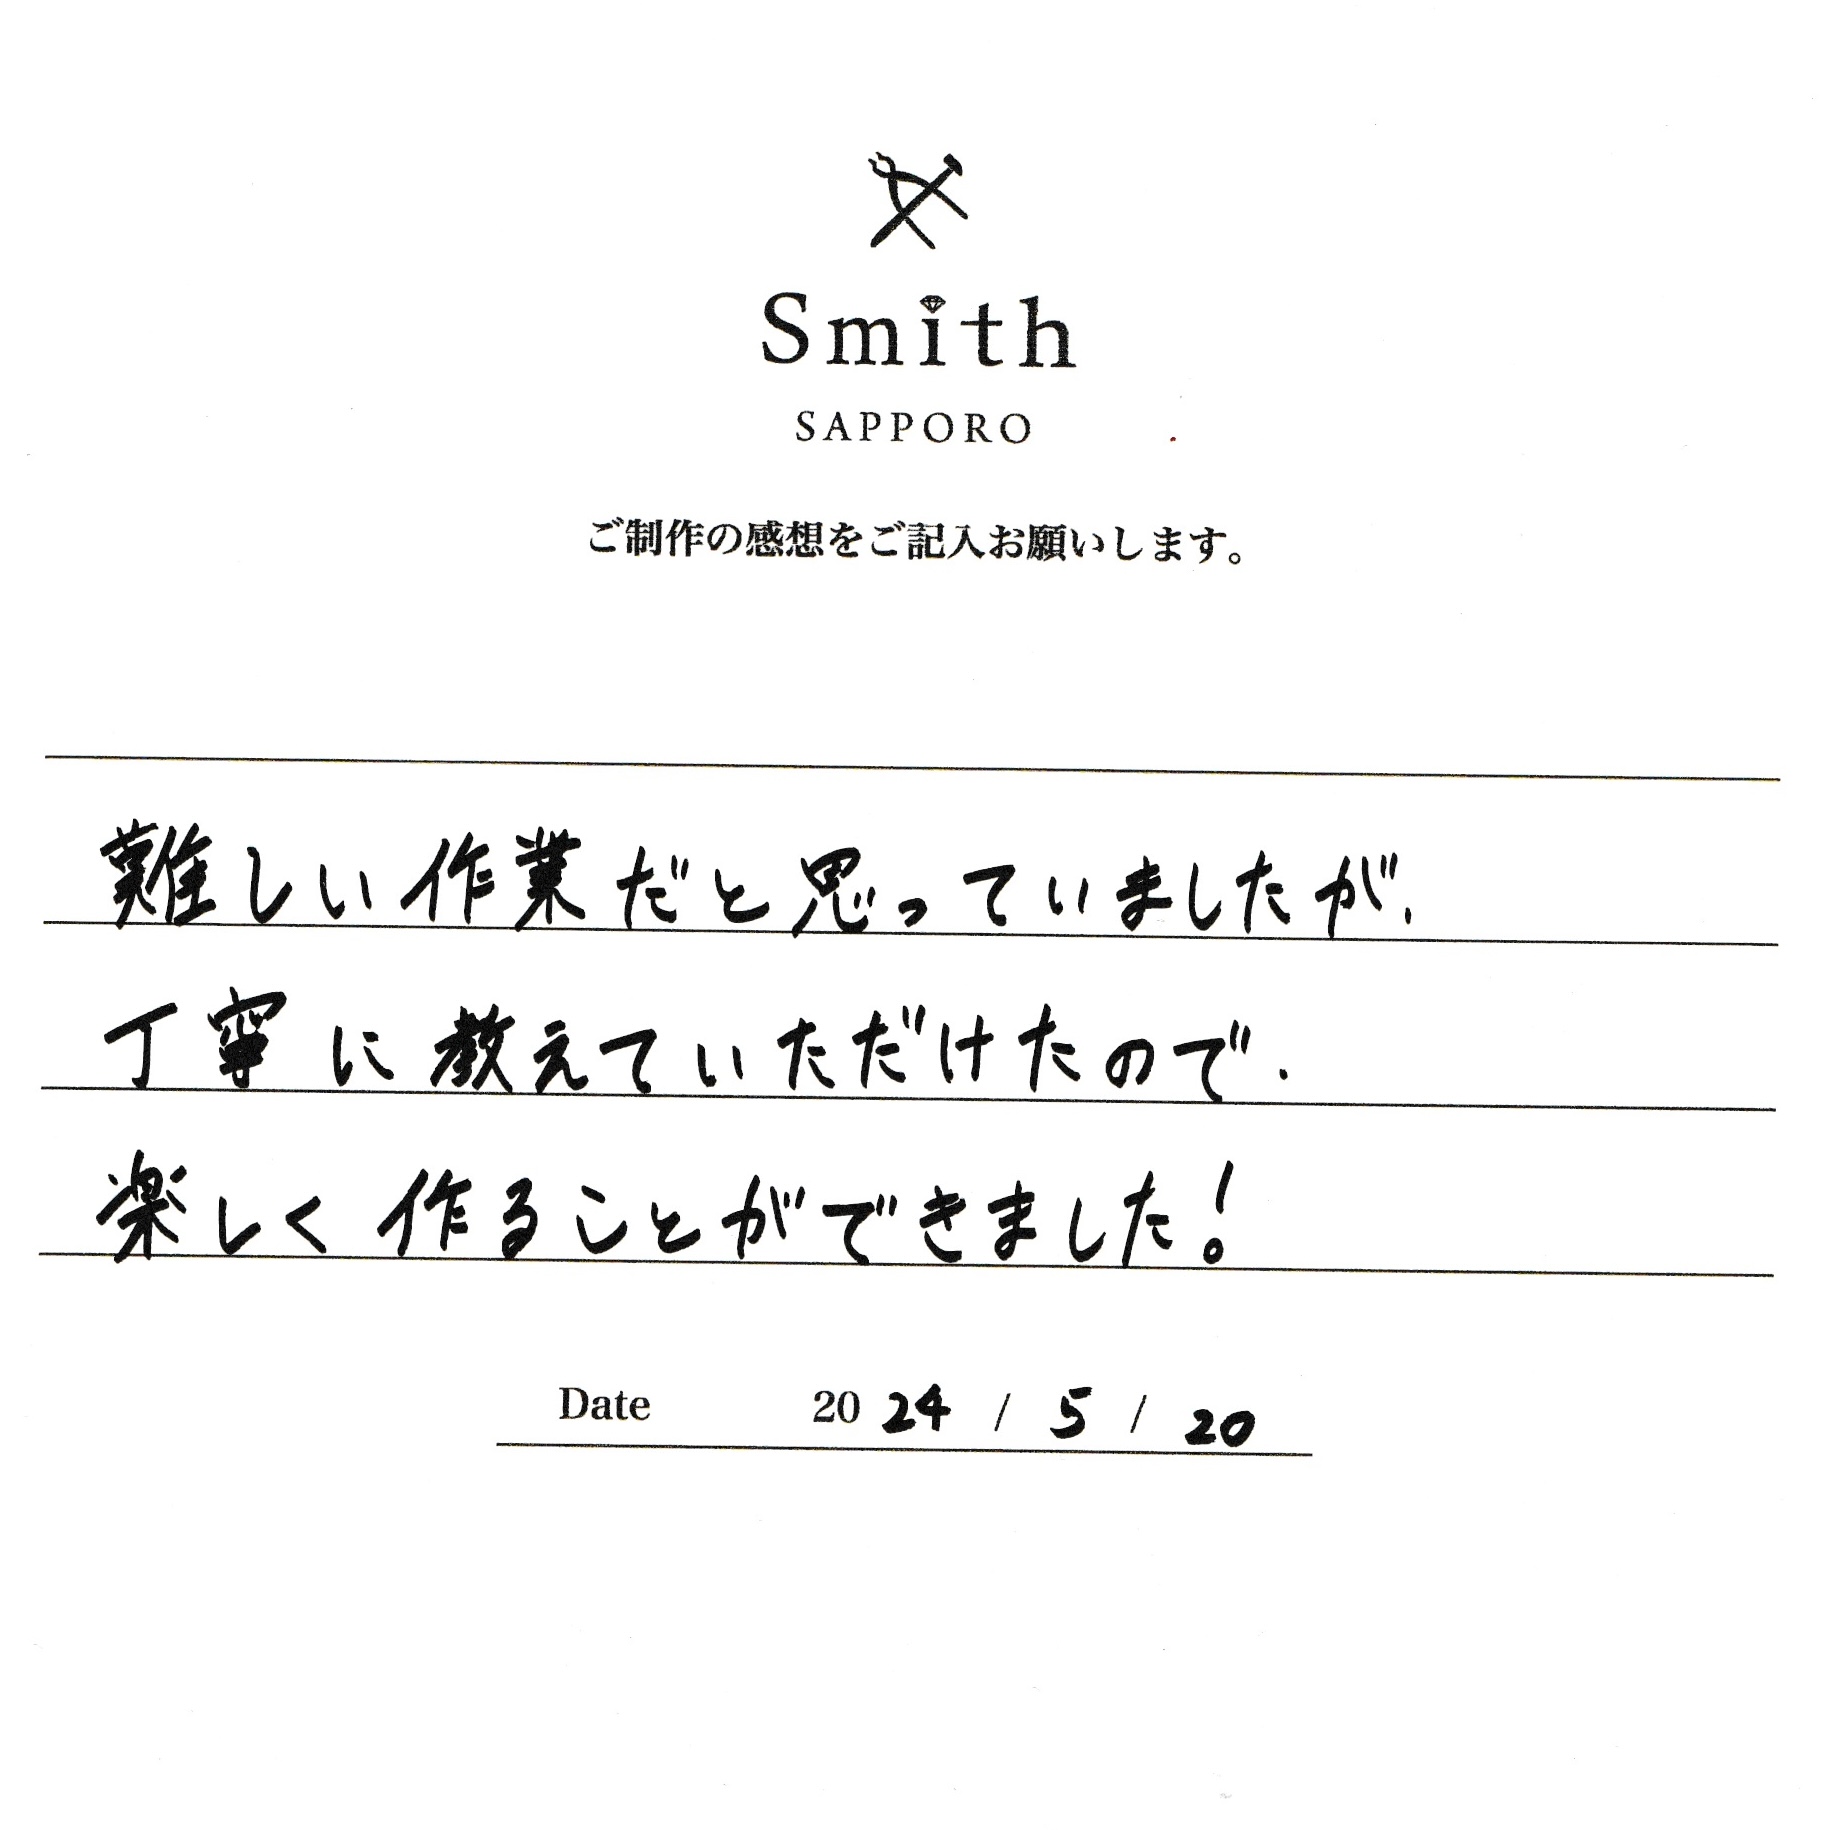 Smith
SAPPORO
ご制作の感想をご記入お願いします。
難しい作業だと思っていましたが、
丁寧に教えていただけたので、
楽しく作ることができました!
Date 2024 / 5 / 20